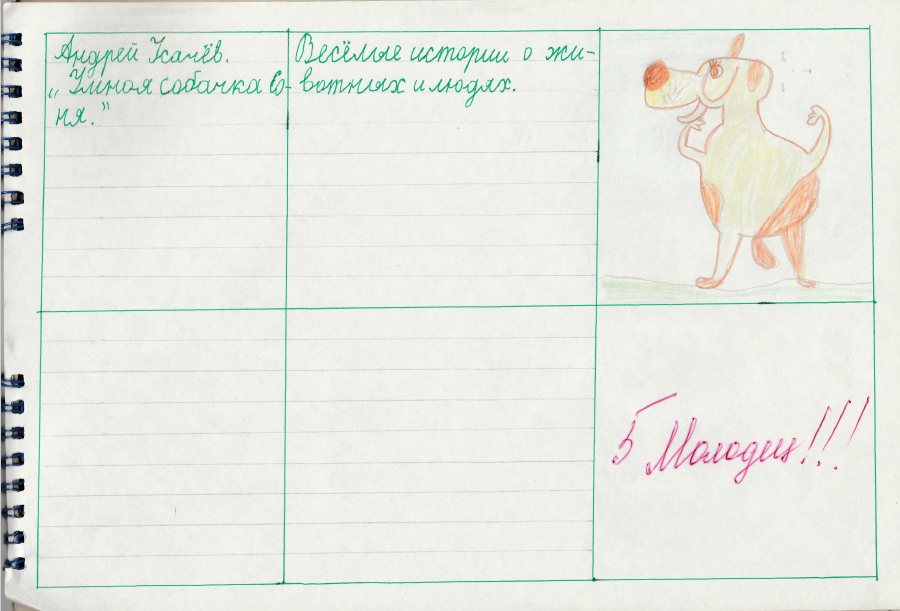 Андрей Усачёв.
„Умная собачка Со-
ня."
Весёлые истории о жи-
вотных и людях.
5 Молодец!!!